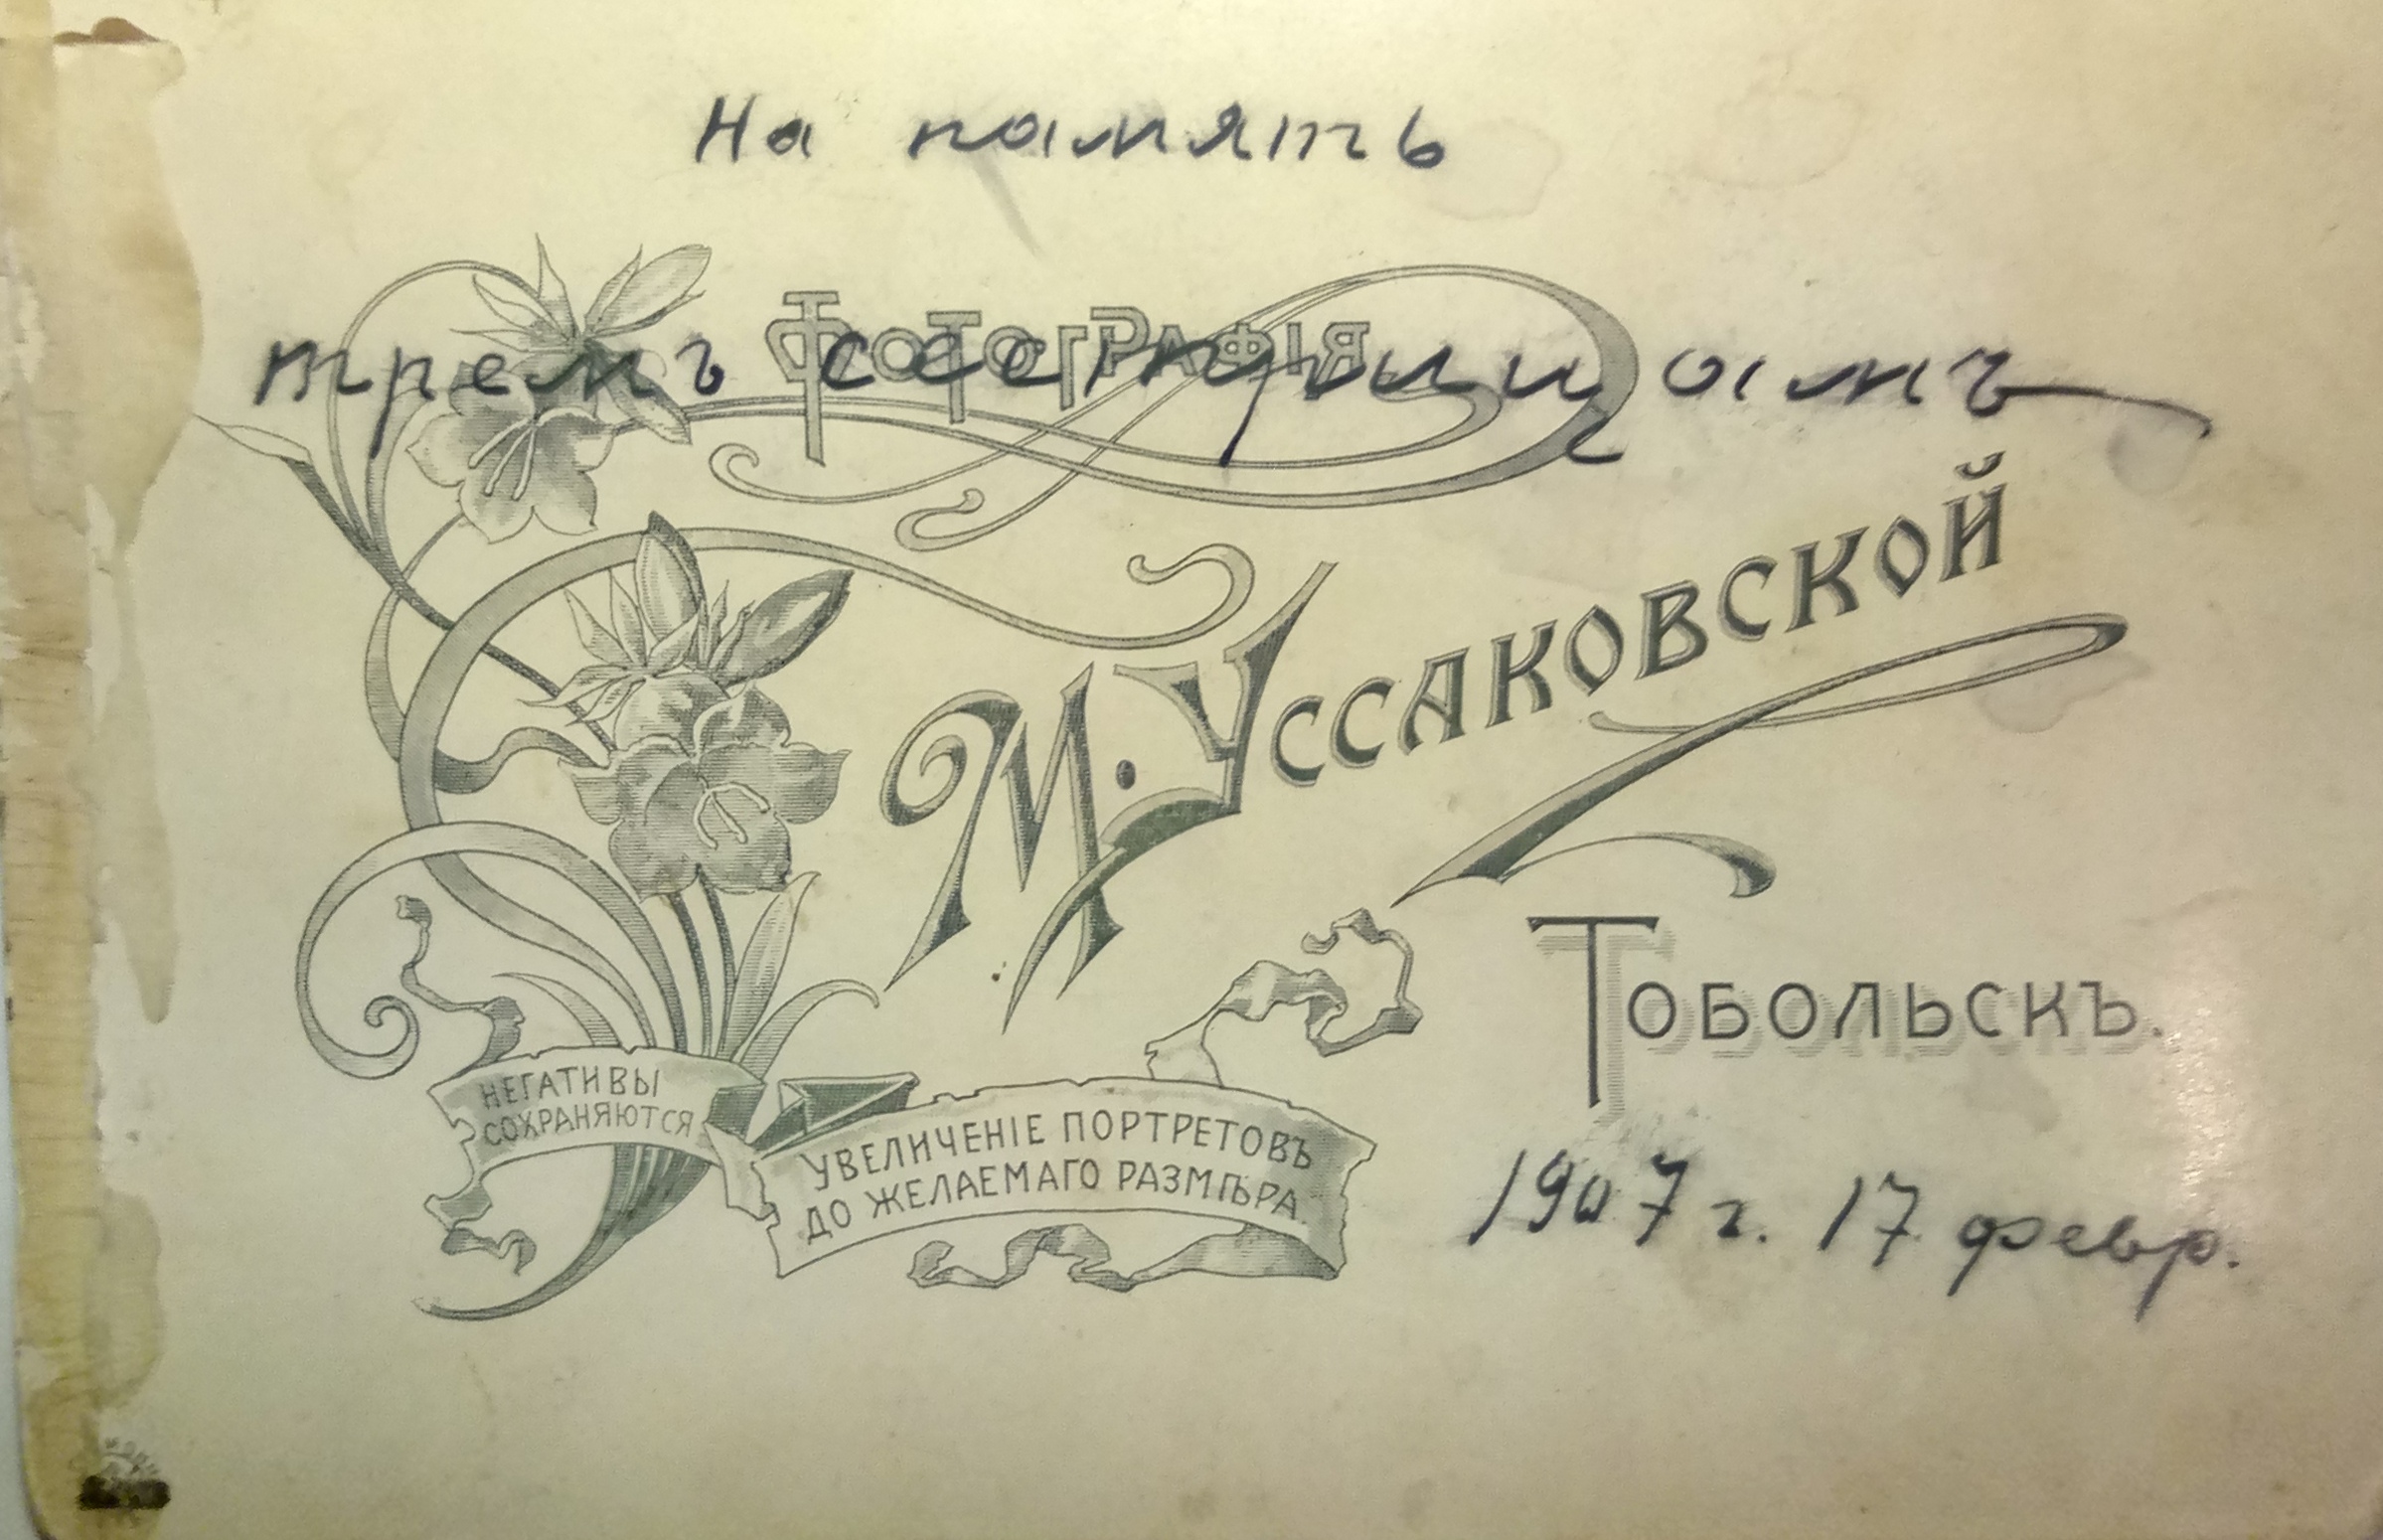 На память
Фотографія
тремъ сестрицамъ
М. Уссаковской
Тобольскъ.
НЕГАТИВЫ
СОХРАНЯЮТСЯ
УВЕЛИЧЕНІЕ ПОРТРЕТОВЪ
ДО ЖЕЛАЕМАГО РАЗМѢРА.
1907 г. 17 февр.